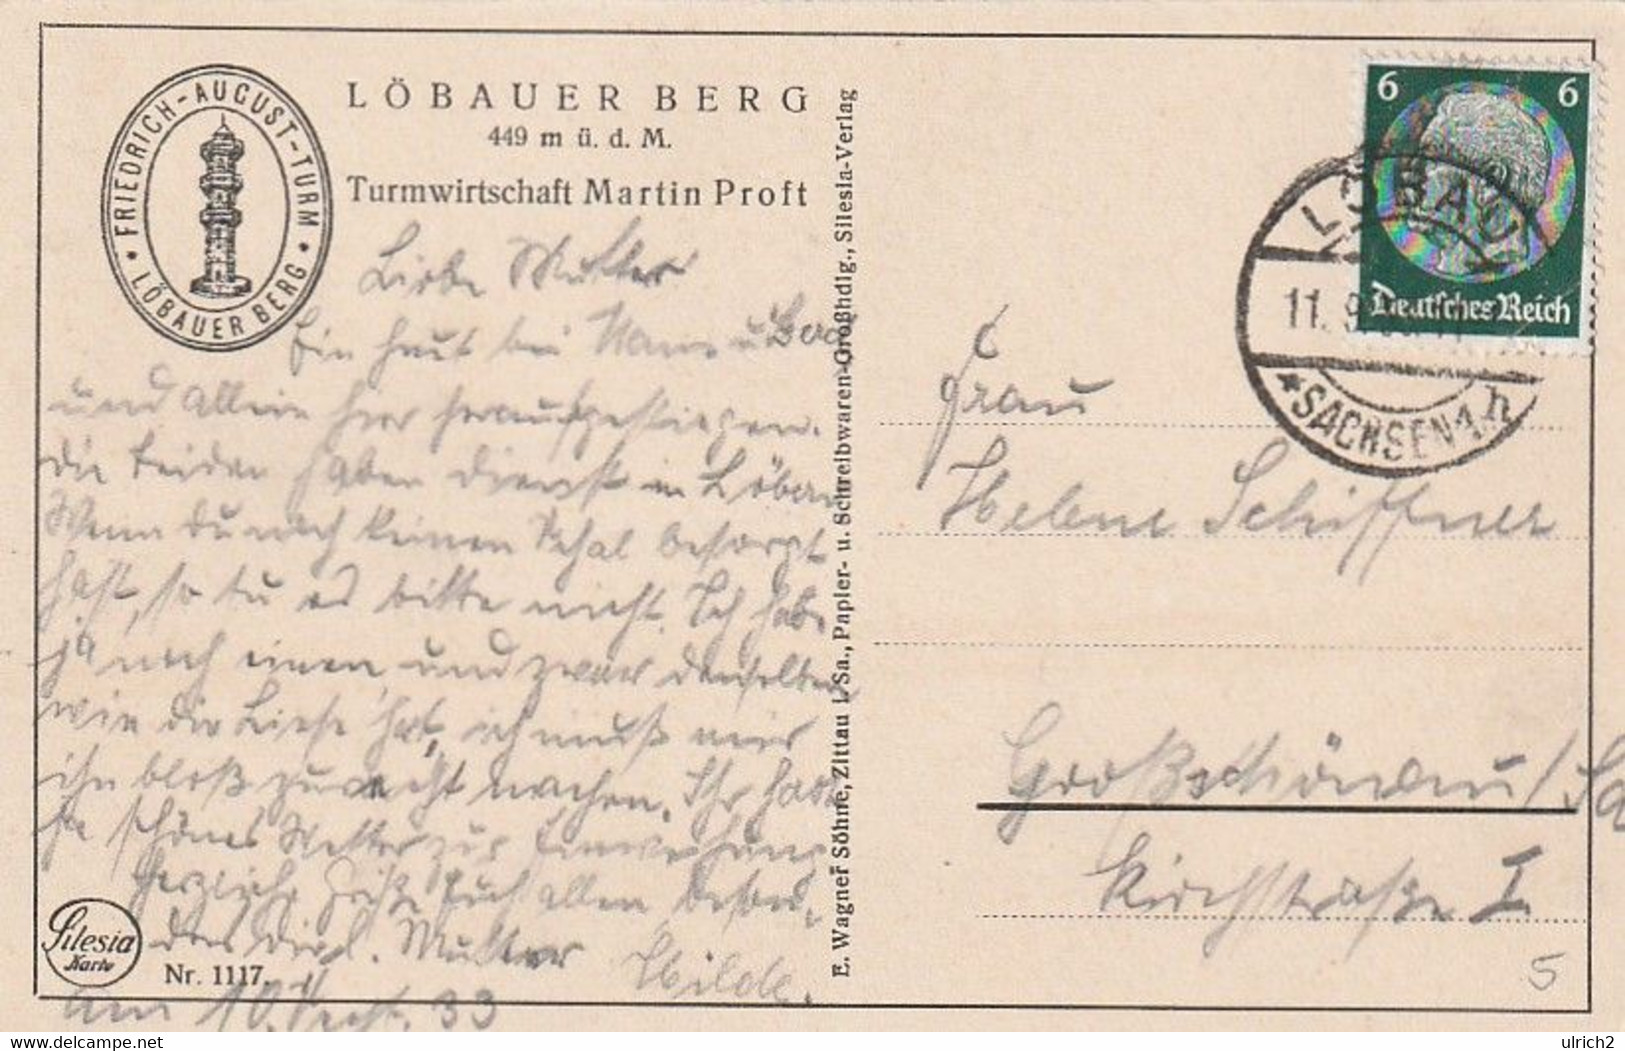 FRIEDRICH-AUGUST-TURM
* LÖBAUER BERG *
LÖBAUER BERG
449 m ü. d. M.
Turmwirtschaft Martin Proft
Liebe Mutter
bei
und allein hier heraufgestiegen.
die beiden haben Dienst in Löbau
Wenn du noch keinen Schal besorgt
hast, so tu es bitte nicht. Ich habe
ja noch einen und zwar denselben
wie die Liese hat, ich muß mir
ihn bloß zurecht machen. Ihr hattet
ja schönes Wetter zur Einweihung
Herzliche Grüße Euch allen beson-
ders Dir l. Mutter Hilde.
am 10. Sept. 33
Silesia
Karte
Nr. 1117.
E. Wagner Söhne, Zittau i. Sa., Papier- u. Schreibwaren-Großhdlg., Silesia-Verlag
6 6
Deutsches Reich
LÖBAU
11. 9.
* SACHSEN 1 h
Frau
Helene Schiffner
Großschönau / Sa
Kirchstraße I
5
delcampe.net
ulrich2